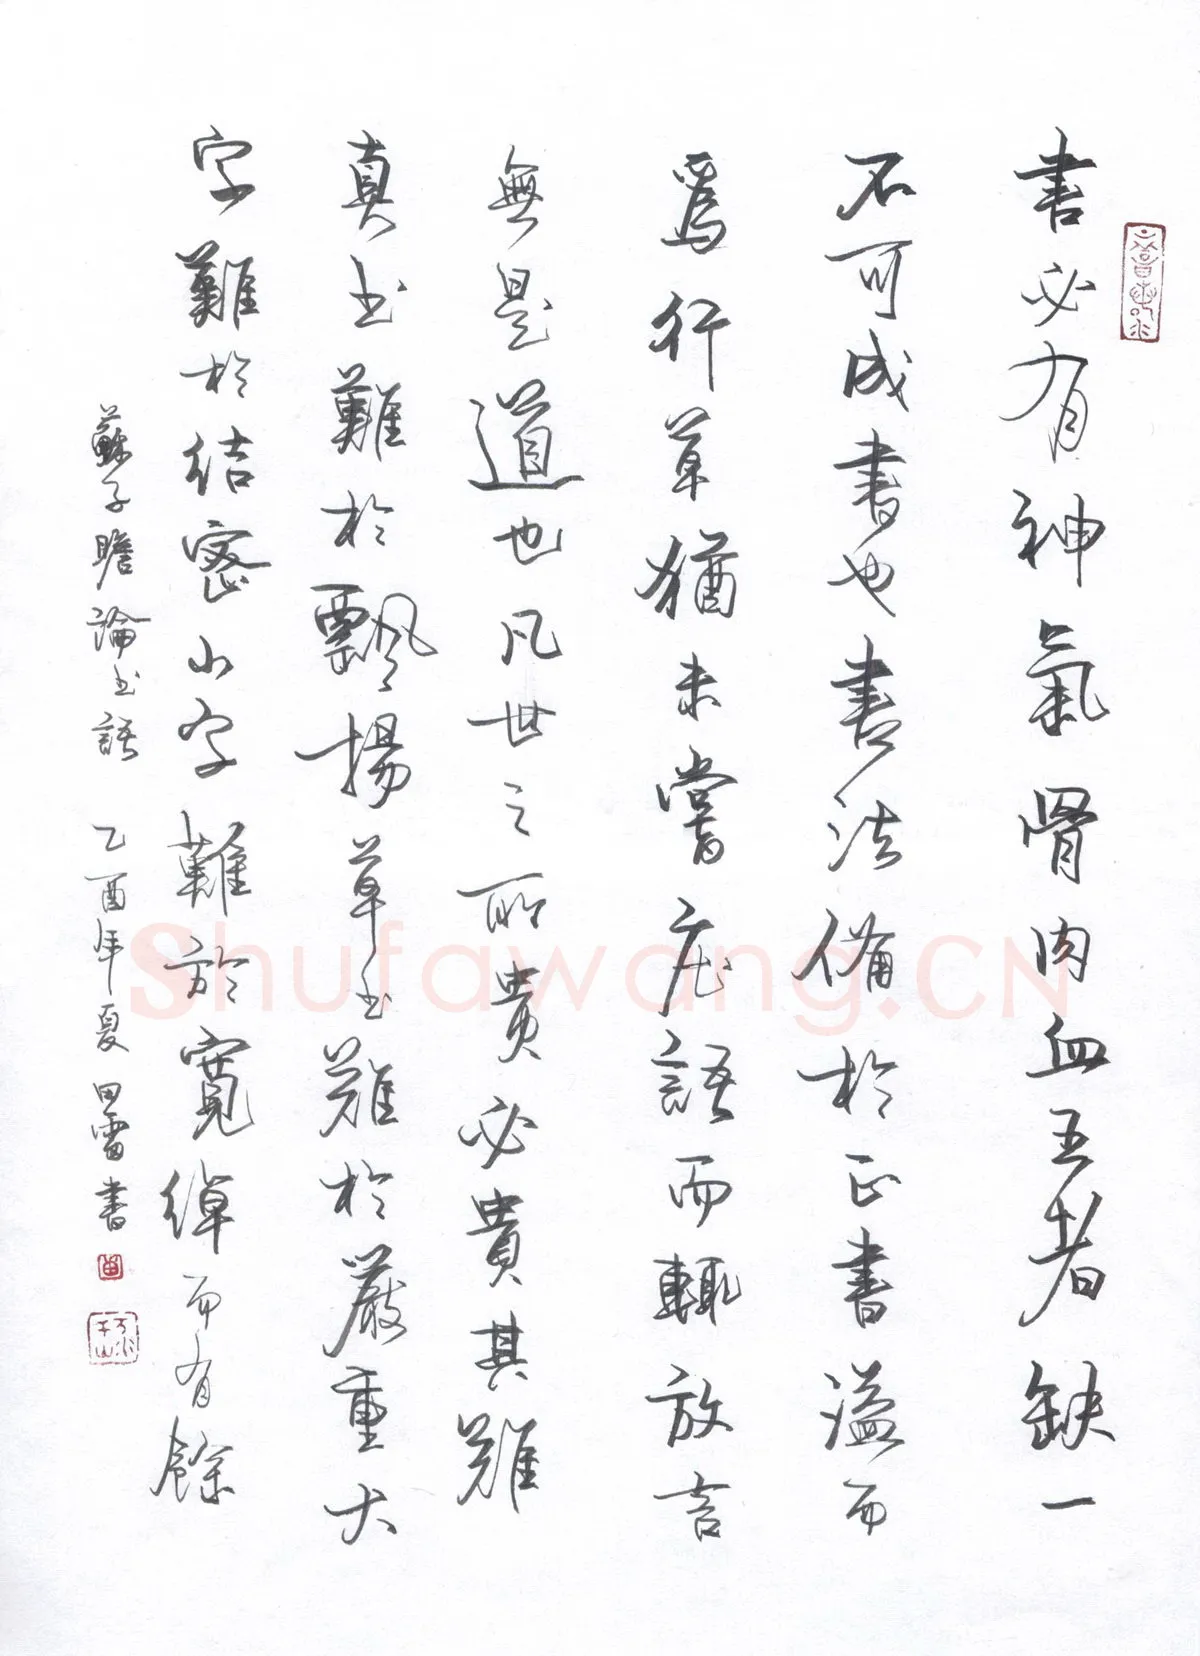 書必有神氣骨肉血五者缺一
不可成書也書法備於正書溢而
爲行草猶未嘗庄語而輒放言
無是道也凡世之所貴必貴其難
真书難於飄揚草书難於嚴重大
字難於结密小字難於寬绰而有餘
蘇子瞻論书語 乙酉年夏 田雷書
Shufawang.CN